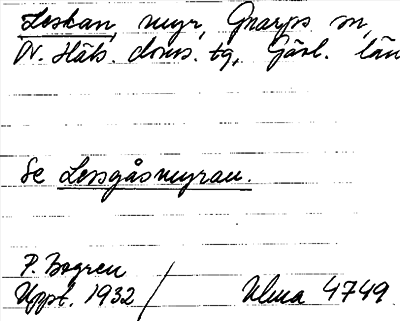 Leskan, myr, Gnarps sn,
N. Häls. doms. tg, Gävl. län
Se Lessgåsmyran.
P. Bogren
Uppt. 1932 / Ulma 4749